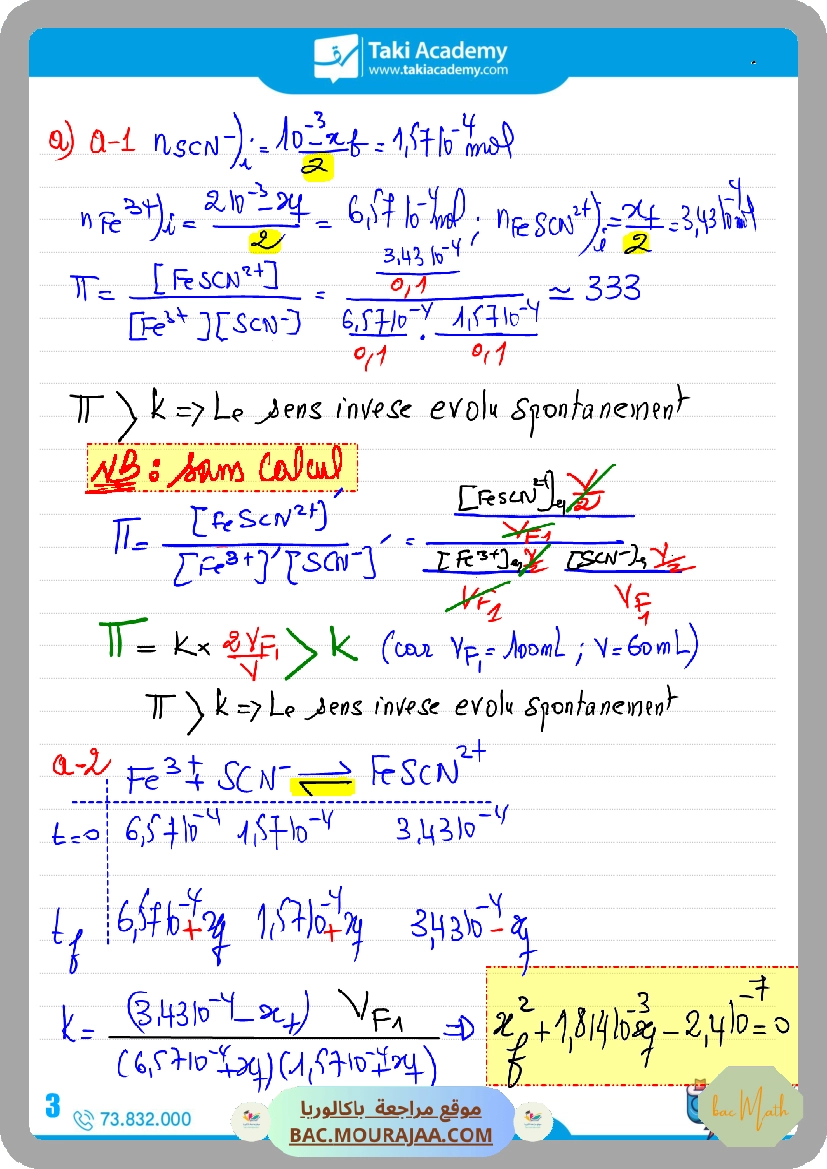 Taki Academy
www.takiacademy.com
a) a-1 nSCN⁻)ᵢ = (10⁻³ - xf)/2 = 1,57 10⁻⁴ mol
nFe³⁺)ᵢ = (2 10⁻³ - xf)/2 = 6,57 10⁻⁴ mol ; nFeSCN²⁺)ᵢ = xf/2 = 3,43 10⁻⁴ mol
π = [FeSCN²⁺]/([Fe³⁺][SCN⁻]) = (3,43 10⁻⁴/0,1)/(6,57 10⁻⁴/0,1 . 1,57 10⁻⁴/0,1) ≃ 333
π > k => Le sens invese evolu spontanement
NB : sans calcul
π = [FeSCN²⁺]'/([Fe³⁺]'[SCN⁻]') = ([FeSCN²⁺]éq V/2 / VF1)/([Fe³⁺]éq V/2 / VF1 [SCN⁻]éq V/2 / VF1)
π = K × 2VF1/V > K (car VF1 = 100mL ; V = 60mL)
π > k => Le sens invese evolu spontanement
a-2 Fe³⁺ + SCN⁻ ⇌ FeSCN²⁺
t=0 6,57 10⁻⁴ 1,57 10⁻⁴ 3,43 10⁻⁴
tf 6,57 10⁻⁴ + xf 1,57 10⁻⁴ + xf 3,43 10⁻⁴ - xf
k = (3,43 10⁻⁴ - xf) VF1/((6,57 10⁻⁴ + xf)(1,57 10⁻⁴ + xf)) => xf² + 1,814 10⁻³ xf - 2,4 10⁻⁷ = 0
3
73.832.000
موقع مراجعة باكالوريا
BAC.MOURAJAA.COM
bac Math